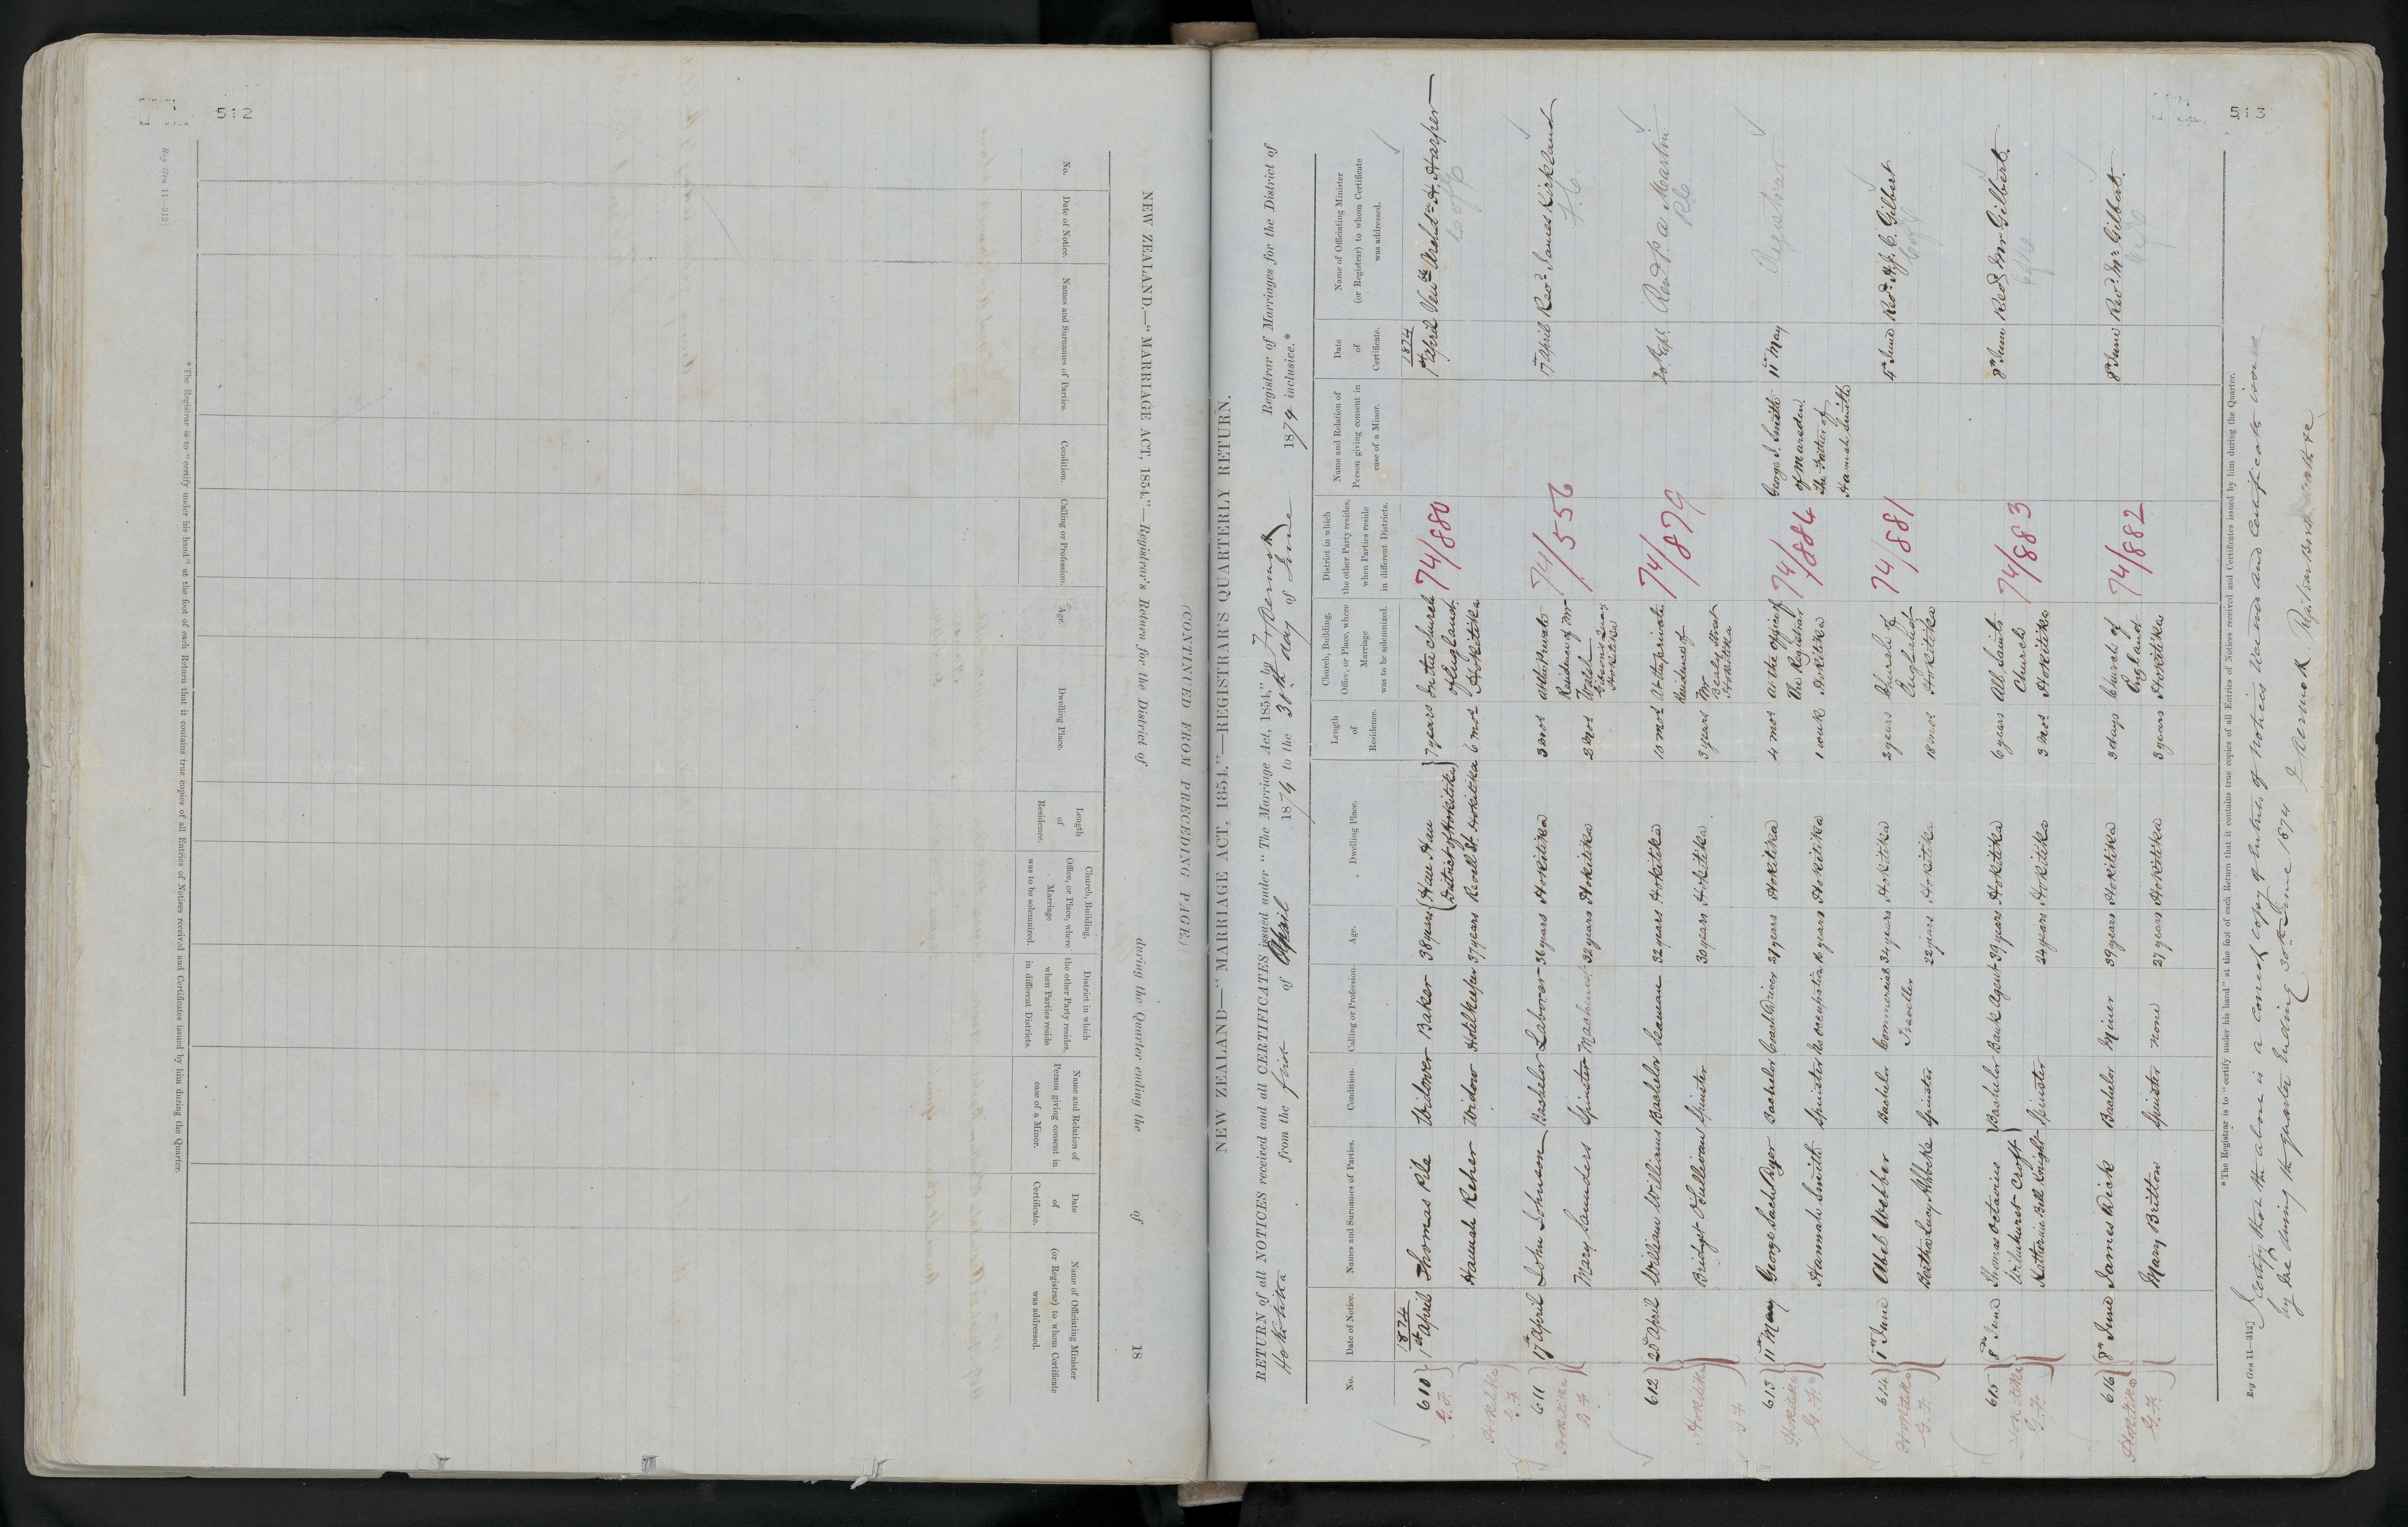 512
Reg Gen 11—312]
NEW ZEALAND.—"MARRIAGE ACT, 1854."—Registrar's Return for the District of during the Quarter ending the of 18
(CONTINUED FROM PRECEDING PAGE.)
No.
Date of Notice.
Names and Surnames of Parties.
Condition.
Calling or Profession.
Age.
Dwelling Place.
Length of Residence.
Church, Building, Office, or Place, where Marriage was to be solemnized.
District in which the other Party resides, when Parties reside in different Districts.
Name and Relation of Person giving consent in case of a Minor.
Date of Certificate.
Name of Officiating Minister (or Registrar) to whom Certificate was addressed.
*The Registrar is to "certify under his hand" at the foot of each Return that it contains true copies of all Entries of Notices received and Certificates issued by him during the Quarter.
513
NEW ZEALAND—"MARRIAGE ACT, 1854."—REGISTRAR'S QUARTERLY RETURN.
RETURN of all NOTICES received and all CERTIFICATES issued under "The Marriage Act, 1854," by Registrar of Marriages for the District of
Hokitika from the first of April 1874 to the 30th day of June 1874 inclusive.*
No.
Date of Notice.
Names and Surnames of Parties.
Condition.
Calling or Profession.
Age.
Dwelling Place.
Length of Residence.
Church, Building, Office, or Place, where Marriage was to be solemnized.
District in which the other Party resides, when Parties reside in different Districts.
Name and Relation of Person giving consent in case of a Minor.
Date of Certificate.
Name of Officiating Minister (or Registrar) to whom Certificate was addressed.
1874 1874
610 1st April Thomas Pile Widower Baker 38 years Hau Hau District of Hokitika 7 years In the Church of England Hokitika 74/880 1st April Ven. Archd. H. Harper C of E
Hannah Keher Widow Hotelkeeper 37 years Revell St. Hokitika 6 mos
Hokitika
611 17th April John Johnson Bachelor Laborer 36 years Hokitika 3 mos at the Private Residence of Mr Gibsons Quay Hokitika 74/556 17th April Revd. James Kirkland
Mary Saunders Spinster 32 years Hokitika 2 mos
Hokitika
612 20 April William Williams Bachelor Seaman 32 years Hokitika 10 mos At the private Residence of Mr Bealey Street Hokitika 74/879 20 Apl. Revd P. A. Martin R.C.
Bridget O'Sullivan Spinster 30 years Hokitika 3 years
Hokitika
613 11th May George Jack Pyor Bachelor Coach Driver 27 years Hokitika 4 mos at the Office of the Registrar Hokitika 74/884 George J. Smith of Marsden. The Father of Hannah Smith 11th May Registrar
Hannah Smith Spinster No occupation 16 years Hokitika 1 week
Hokitika
614 1st June Abel Webber Bachelor Commercial Traveller 34 years Hokitika 2 years Church of England Hokitika 74/881 5th June Revd. H. J. C. Gilbert C of E
Bertha Lucy Spinster 22 years Hokitika 18 mos
Hokitika
615 8th June Thomas Octavius Croft Bachelor Bank Agent 39 years Hokitika 6 years All Saints Church Hokitika 74/883 8th June Revd Mr Gilbert.
Katherine Bell Knight Spinster 24 years Hokitika 3 mos
Hokitika
616 8th June James Dick Bachelor Miner 39 years Hokitika 3 days Church of England Hokitika 74/882 8th June Revd. Mr Gilbert.
Mary Britton Spinster none 27 years Hokitika 3 years
Hokitika
*The Registrar is to "certify under his hand" at the foot of each Return that it contains true copies of all Entries of Notices received and Certificates issued by him during the Quarter.
Reg Gen 11—312]
I Certify that the above is a correct copy of Entries of Notices and Certificates issued
by me during the quarter Ending 30th June 1874